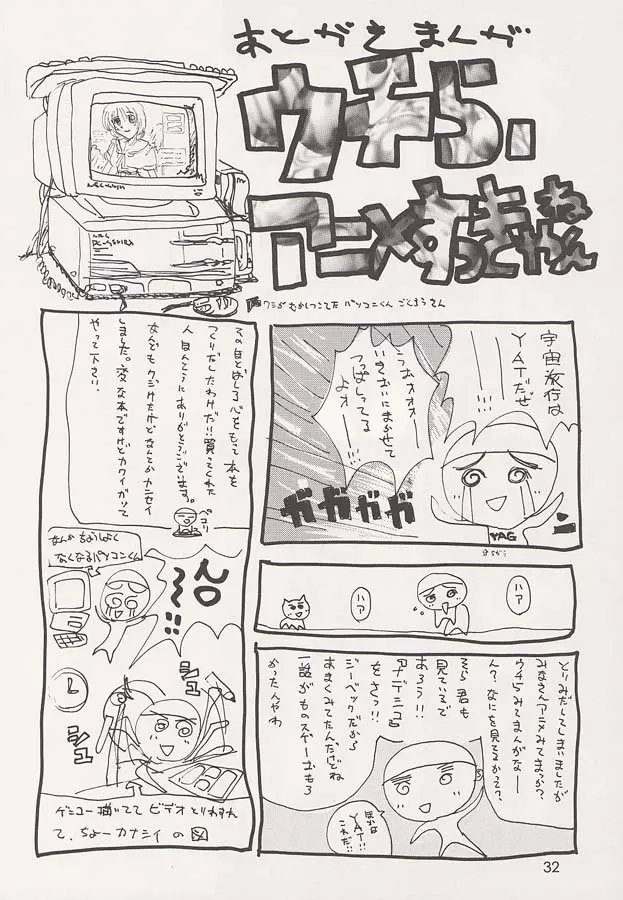 あとがきまんが
ウチら、
アニメすっきやねん
ウシがむかしつこてた パソコンくん ごくろうさん
宇宙旅行は
YATだぜ
!!!
うおォォォー
いきおいにまかせて
つっぱしってる
よォー
ガガガガガ
YAG
ハア
ハア
とりみだしてしまいましたが
みなさんアニメみてまっか?
ウチらみてまんがなー
ん?なにを見てるかって?
そら君も
見ているで
あろう!!
ナデシコ
をさっ!!
ジーベックだから
あまくみてたんだけどね
一話がものスゲーおもろ
かったんやわ
ほかは
YAT!!
これだ!!
その目とばしる心をもって本を
つくりだしたわけだ!!買ってくれた
人 ほんとうにありがとうございます。
なんどもクジけたけどなんとかカンセイ
しました。変な本ですけどカワイがって
やって下さい。
ペコリ
なんか ちょうしよく
なくなるパソコンくん
シュ
シュ
ゲンコー描いてて ビデオとりわすれ
て、ちょーカナシイ の図
32